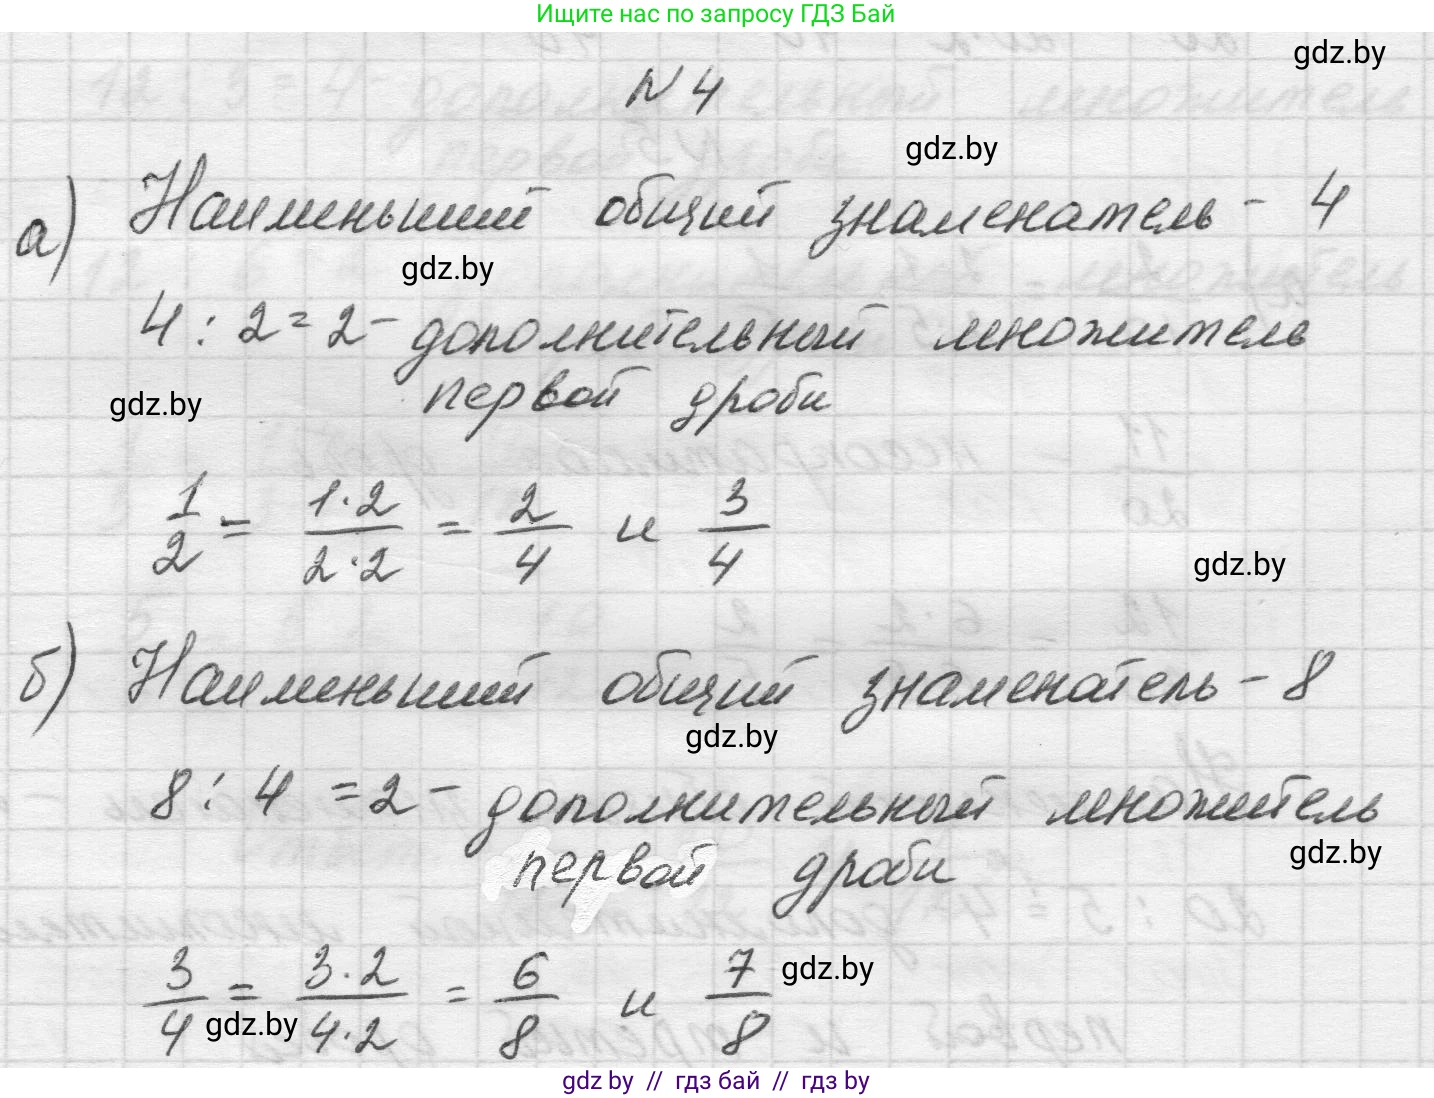 Ищите нас по запросу ГДЗ Бай
gdz.by
N 4
gdz.by
а) Наименьший общий знаменатель - 4
gdz.by
4 : 2 = 2 - дополнительный множитель
gdz.by
первой дроби
1/2 = 1·2/2·2 = 2/4 и 3/4
gdz.by
б) Наименьший общий знаменатель - 8
gdz.by
8 : 4 = 2 - дополнительный множитель
gdz.by
первой дроби
3/4 = 3·2/4·2 = 6/8 и 7/8
gdz.by
gdz.by
gdz by // гдз бай // гдз by